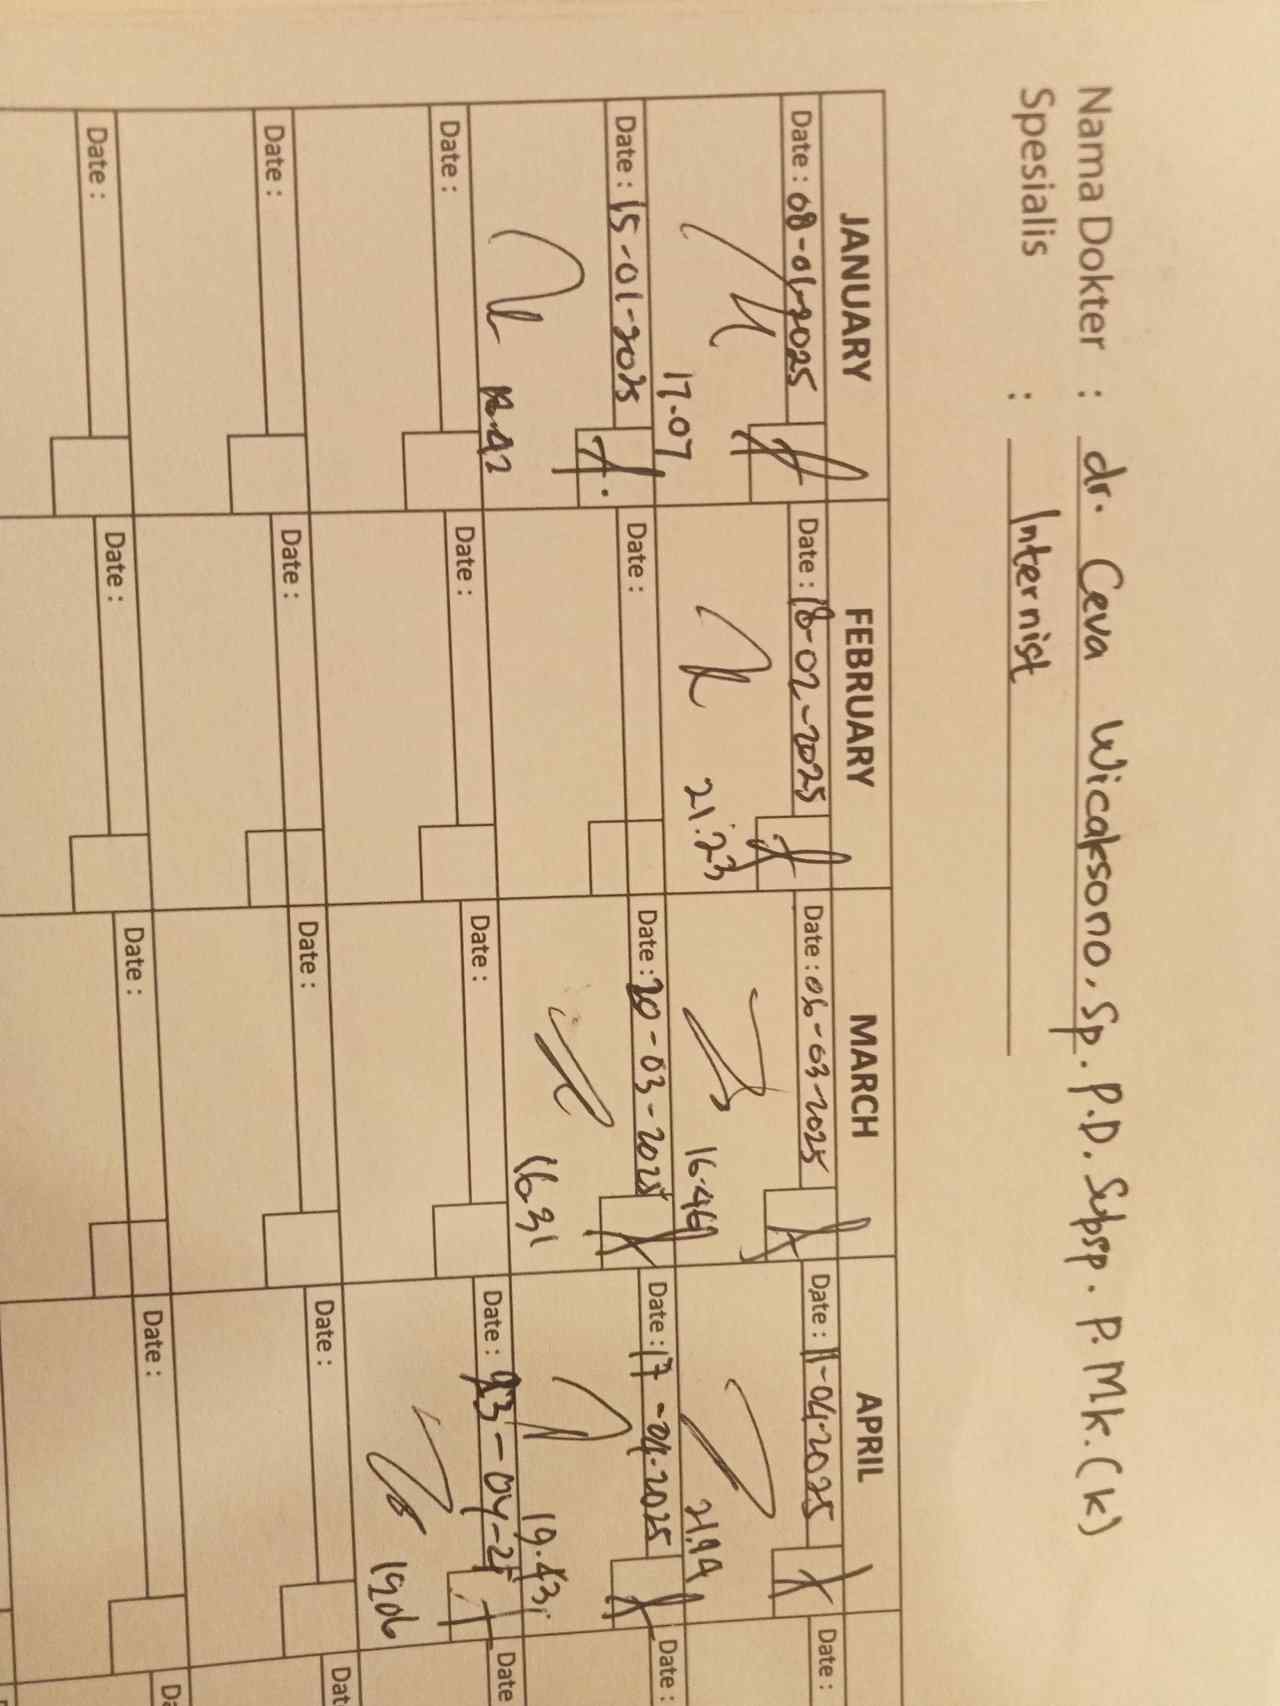 Nama Dokter : dr. Ceva Wicaksono, Sp. P.D. Subsp. P. Mk. (K)
Spesialis : Internist
JANUARY FEBRUARY MARCH APRIL
Date : 08-01-2025 Date : 18-02-2025 Date : 06-03-2025 Date : 11-04-2025 Date :
17.07 21.23 16.46
Date : 15-01-2025 Date : Date : 20-03-2025 Date : 17-04-2025 Date :
16.31 19.43
Date : Date : Date : Date : 23-04-25 Date
1906
Date : Date : Date : Date : Dat
Date : Date : Date : Date : Da